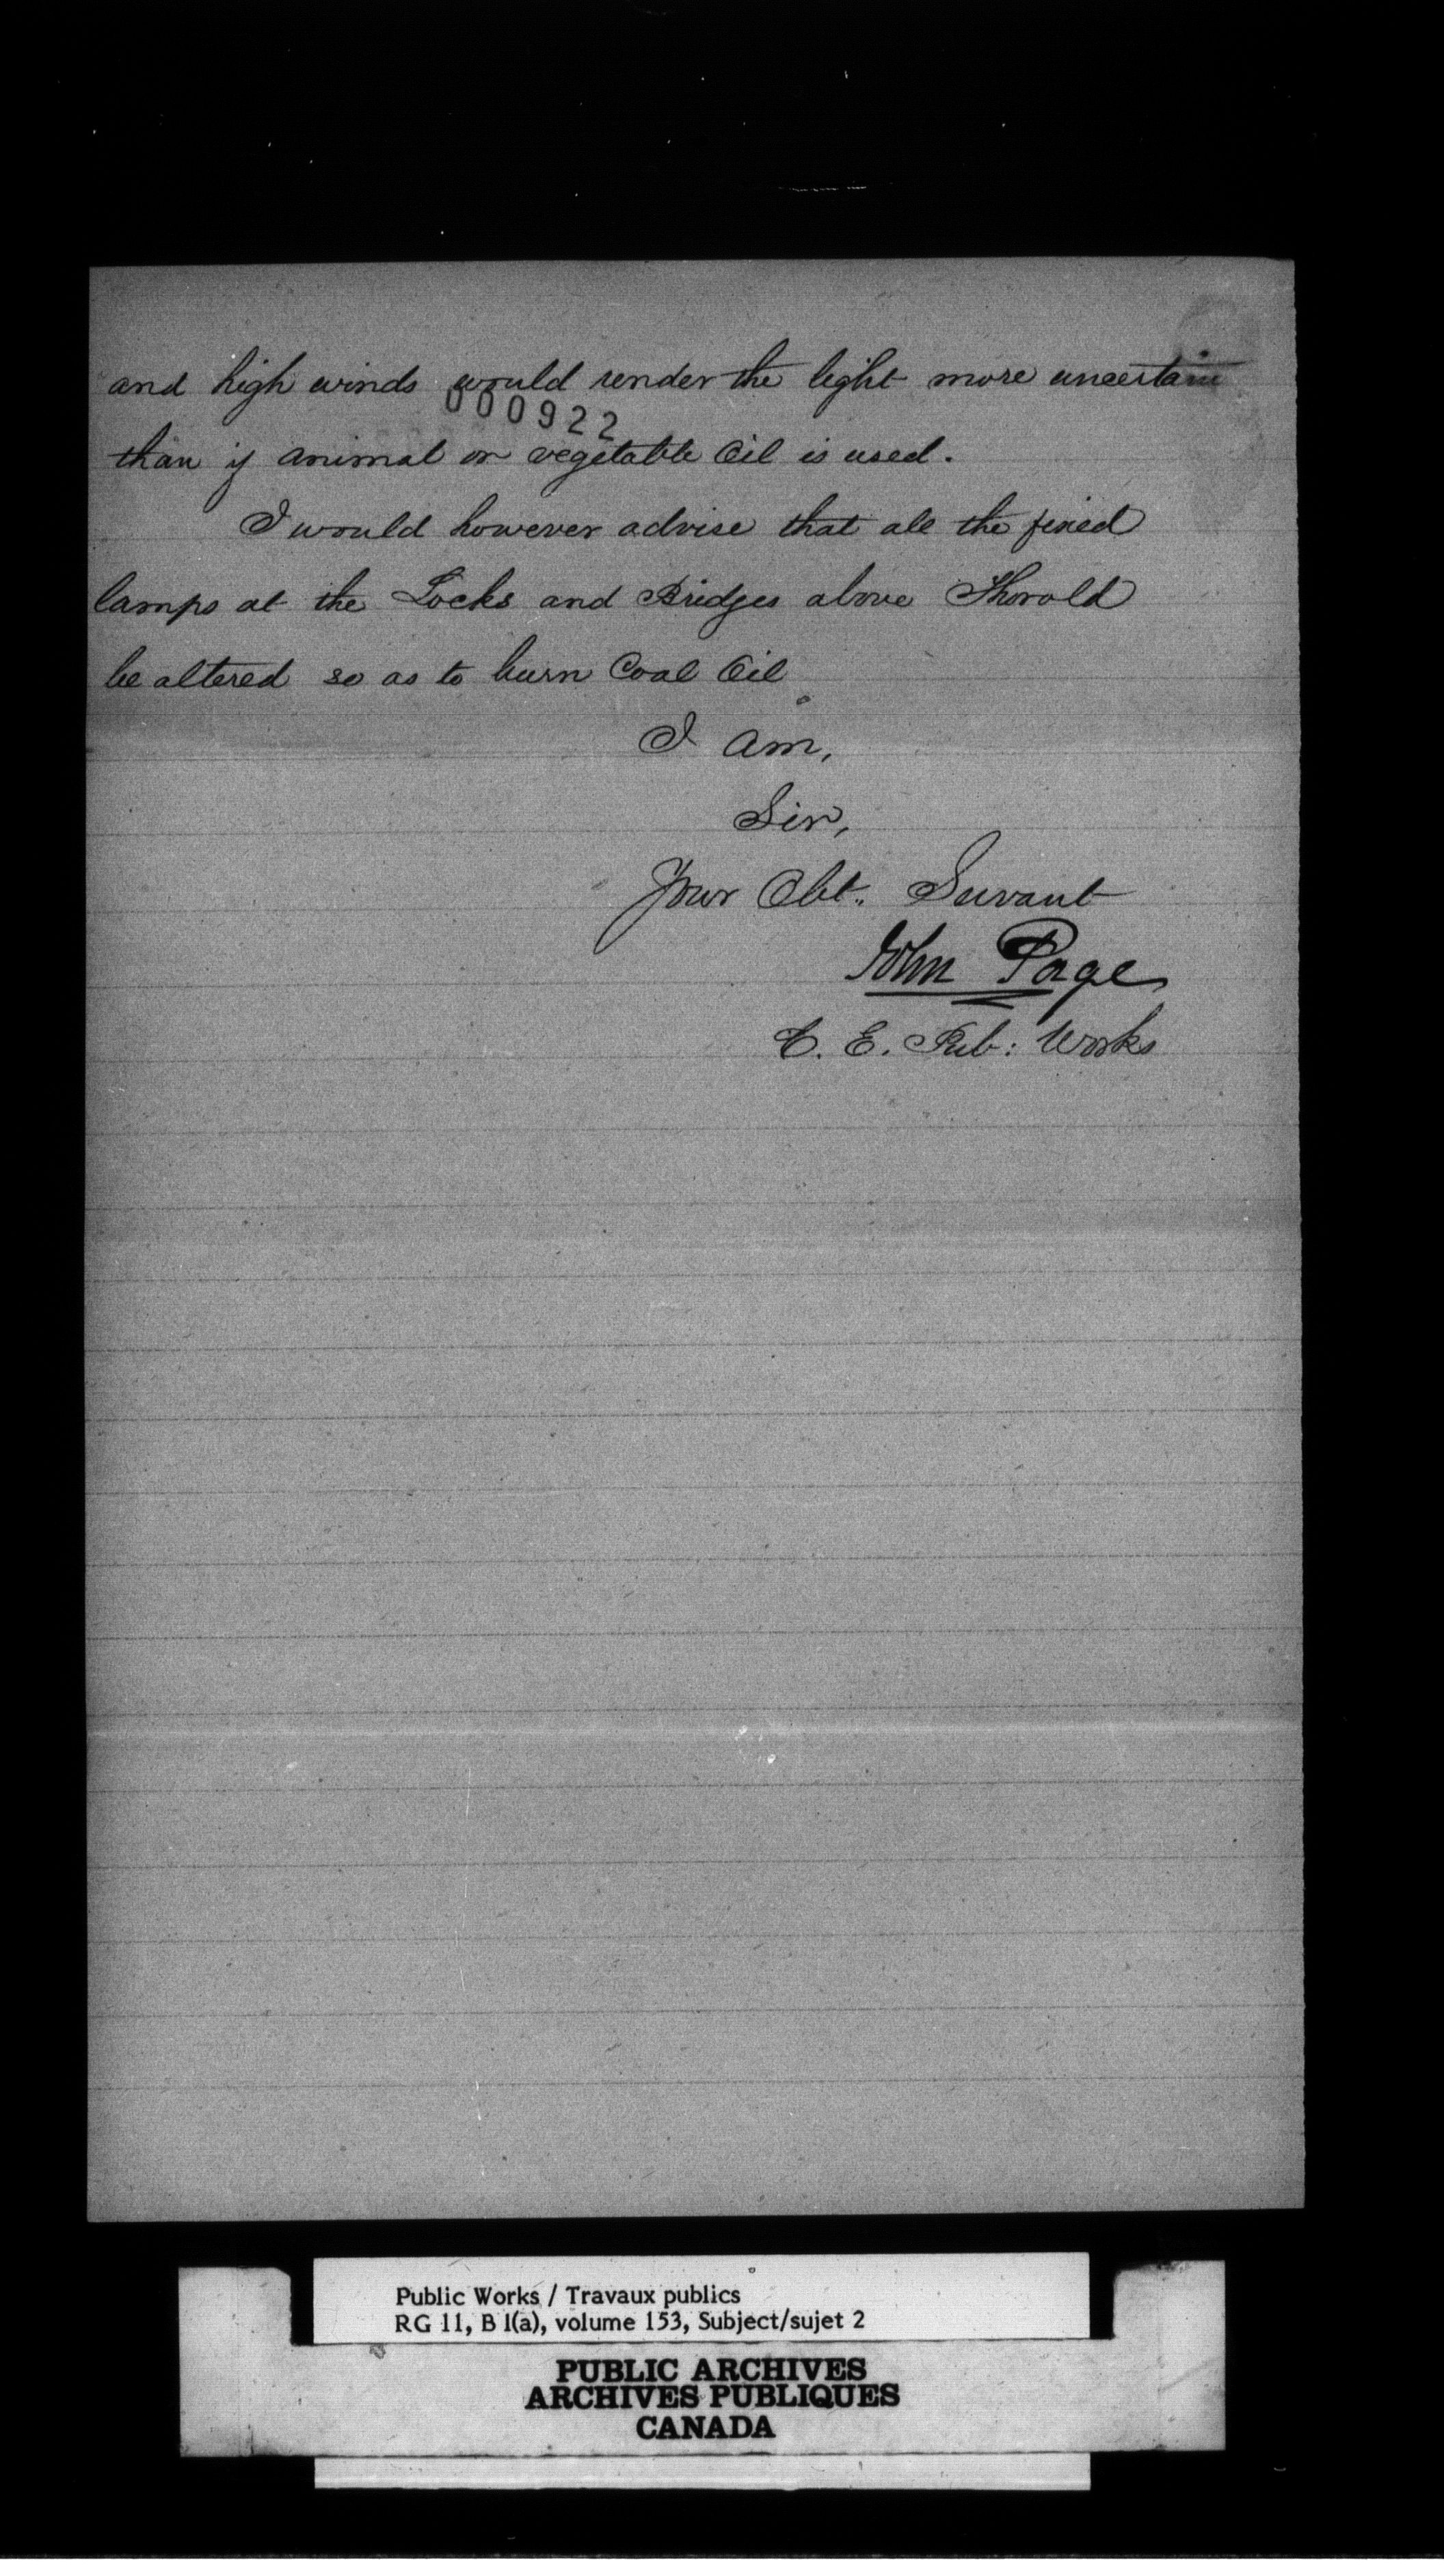 and high winds would render the light more uncertain
000922
than if animal or vegetable Oil is used.
I would however advise that all the fixed
lamps at the Locks and Bridges above Thorold
be altered so as to burn Coal Oil.
I am,
Sir,
Your Obt. Servant
John Page
C. E. Pub: Works
Public Works / Travaux publics
RG 11, B 1(a), volume 153, Subject/sujet 2
PUBLIC ARCHIVES
ARCHIVES PUBLIQUES
CANADA